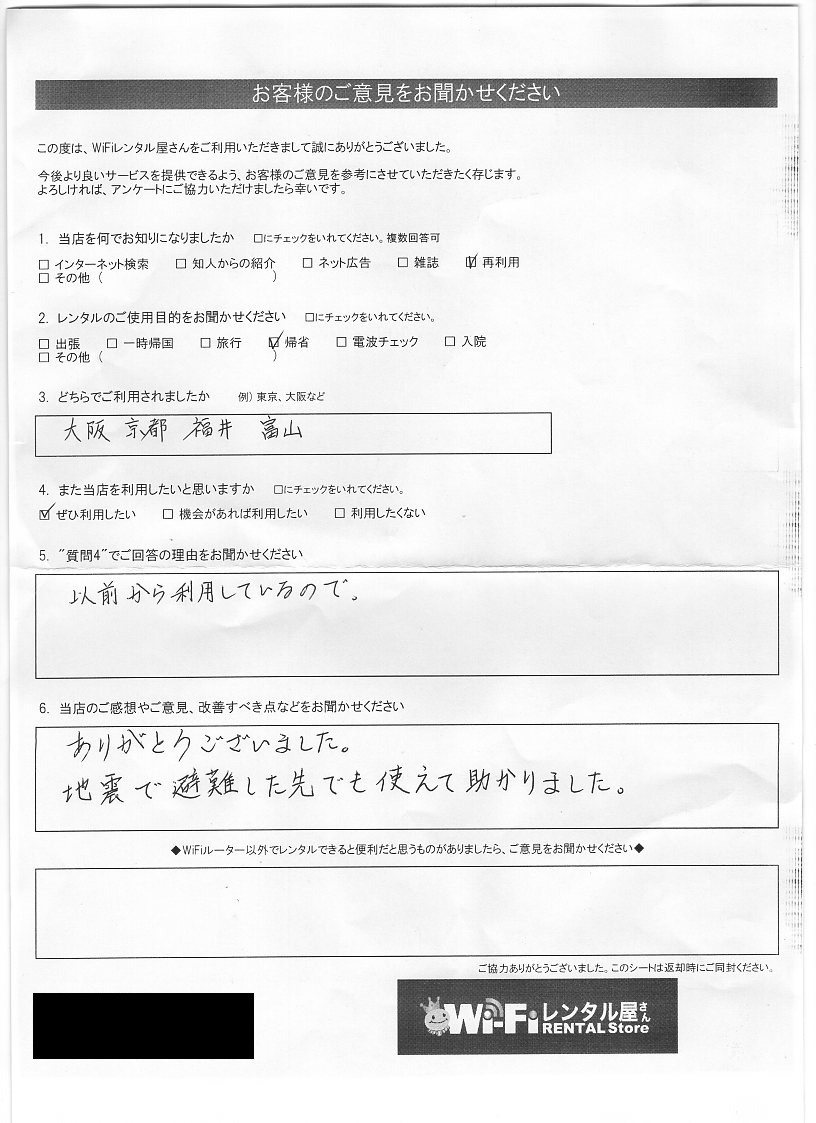 お客様のご意見をお聞かせください
この度は、WiFiレンタル屋さんをご利用いただきまして誠にありがとうございました。
今後より良いサービスを提供できるよう、お客様のご意見を参考にさせていただきたく存じます。
よろしければ、アンケートにご協力いただけましたら幸いです。
1. 当店を何でお知りになりましたか □にチェックをいれてください。複数回答可
□ インターネット検索 □ 知人からの紹介 □ ネット広告 □ 雑誌 ☑ 再利用
□ その他 ( )
2. レンタルのご使用目的をお聞かせください □にチェックをいれてください。
□ 出張 □ 一時帰国 □ 旅行 ☑ 帰省 □ 電波チェック □ 入院
□ その他 ( )
3. どちらでご利用されましたか 例) 東京、大阪など
大阪 京都 福井 富山
4. また当店を利用したいと思いますか □にチェックをいれてください。
☑ ぜひ利用したい □ 機会があれば利用したい □ 利用したくない
5. "質問4"でご回答の理由をお聞かせください
以前から利用しているので。
6. 当店のご感想やご意見、改善すべき点などをお聞かせください
ありがとうございました。
地震で避難した先でも使えて助かりました。
◆WiFiルーター以外でレンタルできると便利だと思うものがありましたら、ご意見をお聞かせください◆
ご協力ありがとうございました。このシートは返却時にご同封ください。
Wi-Fiレンタル屋さん
RENTAL Store